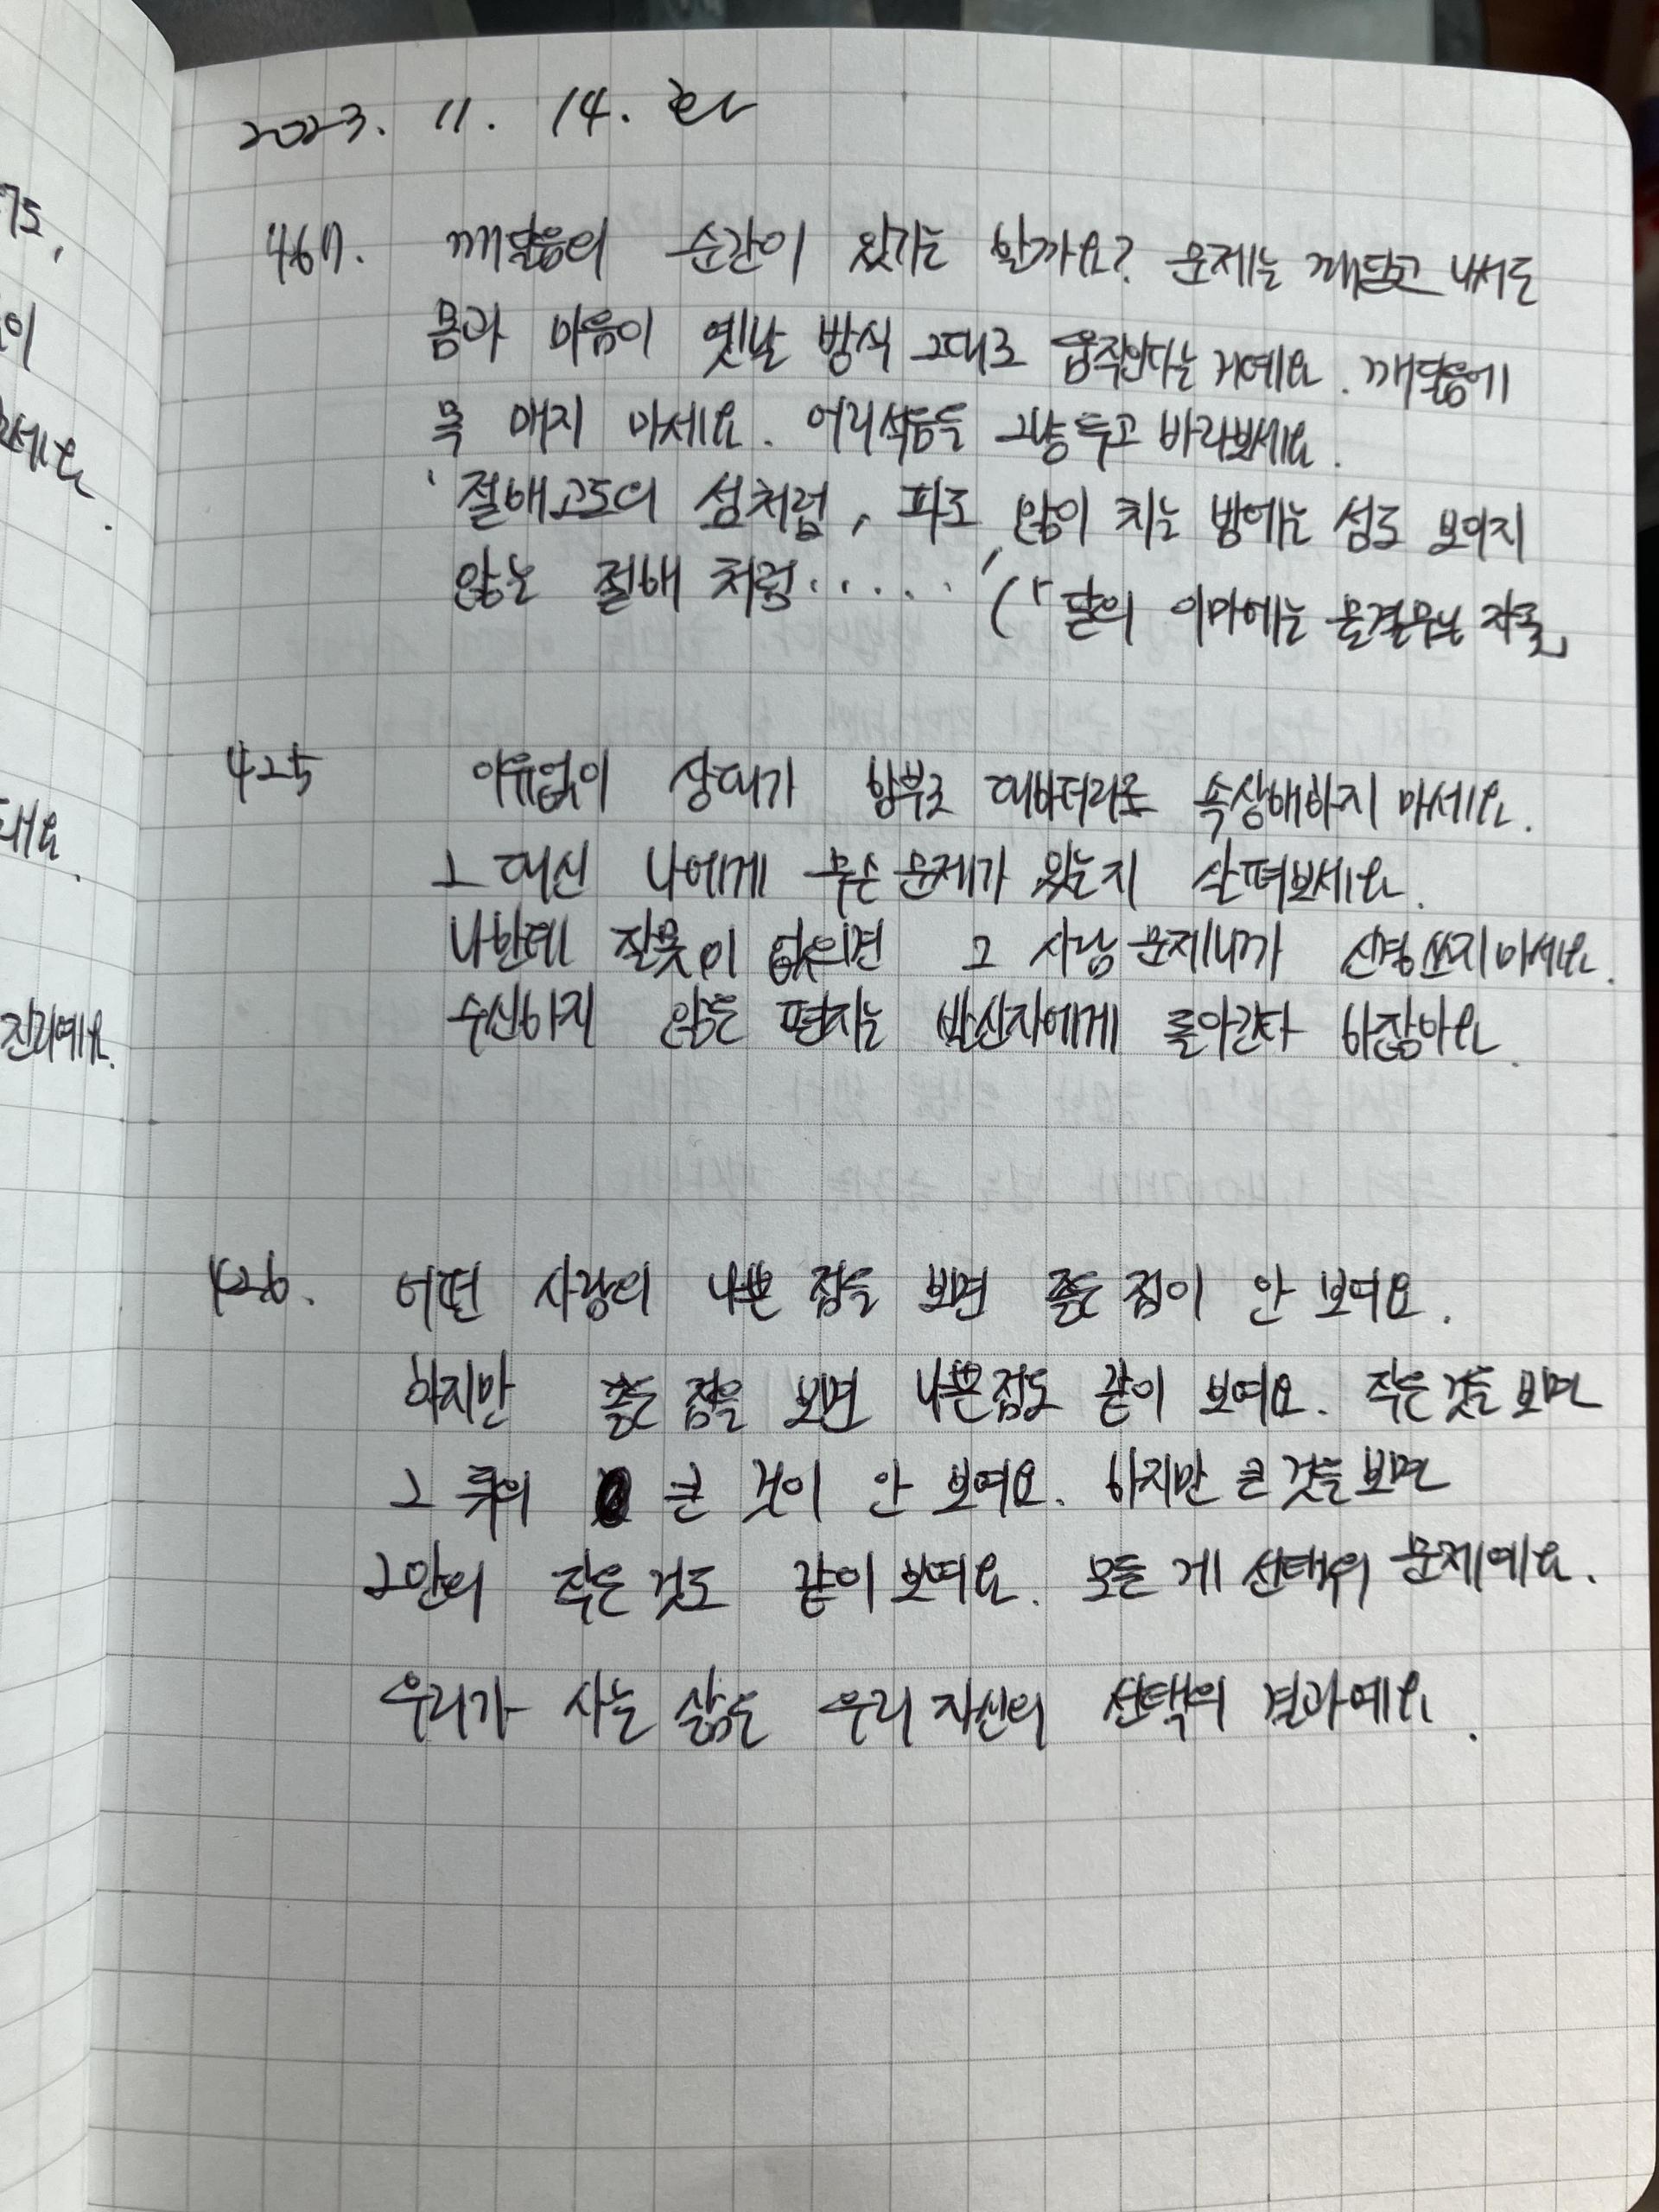 2023. 11. 14. 화
467. 깨달음의 순간이 있기는 할까요? 문제는 깨닫고 나서도
몸과 마음이 옛날 방식 그대로 움직인다는 거예요. 깨달음에
목 매지 마세요. 어리석음을 그냥 두고 바라보세요.
'절해고도의 섬처럼, 파도 많이 치는 밤에는 섬도 보이지
않는 절해 처럼.....' (「달의 이마에는 물결무늬 자국」
425 이유없이 상대가 함부로 대하더라도 속상해하지 마세요.
그 대신 나에게 무슨 문제가 있는지 살펴보세요.
나한테 잘못이 없으면 그 사람 문제니까 신경쓰지마세요.
수신하지 않은 편지는 발신자에게 돌아간다 하잖아요.
426. 어떤 사람의 나쁜 점을 보면 좋은 점이 안 보여요.
하지만 좋은 점을 보면 나쁜점도 같이 보여요. 작은 것을 보면
그 뒤의 큰 것이 안 보여요. 하지만 큰 것을 보면
그안의 작은 것도 같이 보여요. 모든 게 선택의 문제예요.
우리가 사는 삶은 우리 자신의 선택의 결과예요.